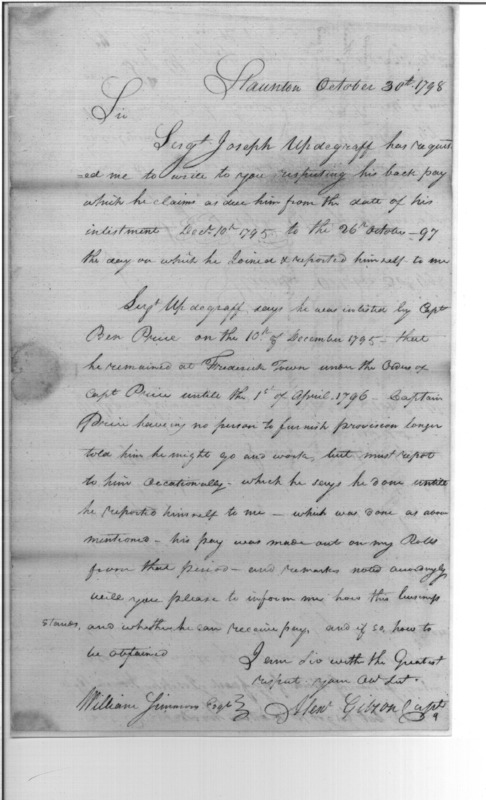 Staunton October 30th 1798
Sir
Sergt Joseph Updegraff has request
=ed me to write to you respecting his back pay
which he claims as due him from the date of his
inlistment Decr 10th 1795 to the 26th October - 97
the day on which he Joined & reported himself to me
Sergt Updegraff says he was inlisted by Capt
Ben Price on the 10th of December 1795 - that
he remained at Frederick Town under the Orders of
Capt Price untill the 1st of April 1796 - Captain
Price having no person to furnish provision longer
told him he might go and work, but must repot
to him occationally - which he says he done untill
he reported himself to me - which was done as above
mentioned - his pay was made out on my Rolls
from that period - and remarks noted
will you please to inform me how this business
stands, and whether he can receive pay, and if so, how to
be obtained
I am Sir with the Greatest
respect your Obt Sert
William Simmons Esqr Alexr Gibson Capt